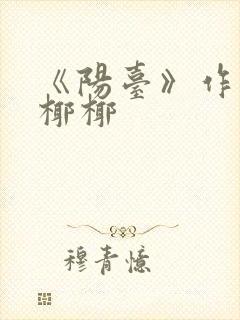 《陽臺》作
椰椰
穆青憶